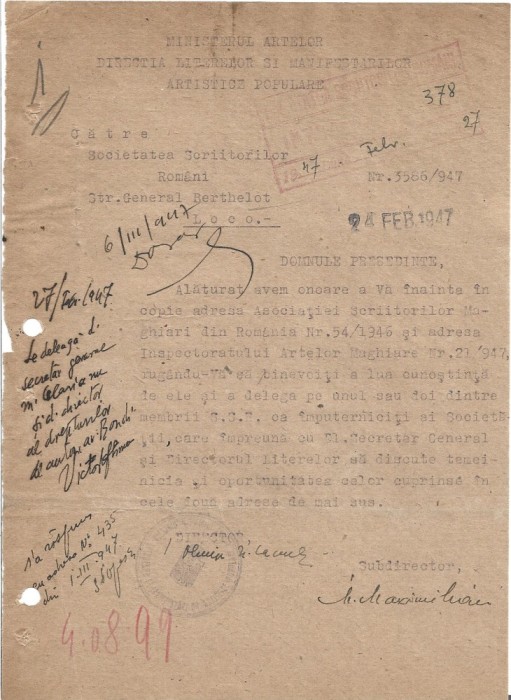 MINISTERUL ARTELOR
DIRECTIA LITERELOR SI MANIFESTARILOR
ARTISTICE POPULARE
378
27
Febr.
47
Către
Societatea Scriitorilor
Români
Nr.3566/947
Str.General Berthelot
Loco.-
24 FEB 1947
6/III/947
DOMNULE PRESEDINTE,
27/Febr./947
Alăturat avem onoare a Vă înainta în
copie adresa Asociației Scriitorilor Ma-
ghiari din România Nr.54/1946 și adresa
Inspectoratului Artelor Maghiare Nr.21/947,
rugându-Vă să binevoiți a lua cunoștință
de ele și a delega pe unul sau doi dintre
membrii S.S.R. ca împuterniciți ai Societă-
ții, care împreună cu Dl.Secretar General
și Directorul Literelor să discute temei-
nicia și oportunitatea celor cuprinse în
cele două adrese de mai sus.
Se deleagă d.
secretar general
și d. director
al drepturilor
de autor
Victor Eftimiu
s'a răspuns
cu adresa No. 435
din 1-III-947
DIRECTOR
Subdirector,
M. Maximilian
4.08.99